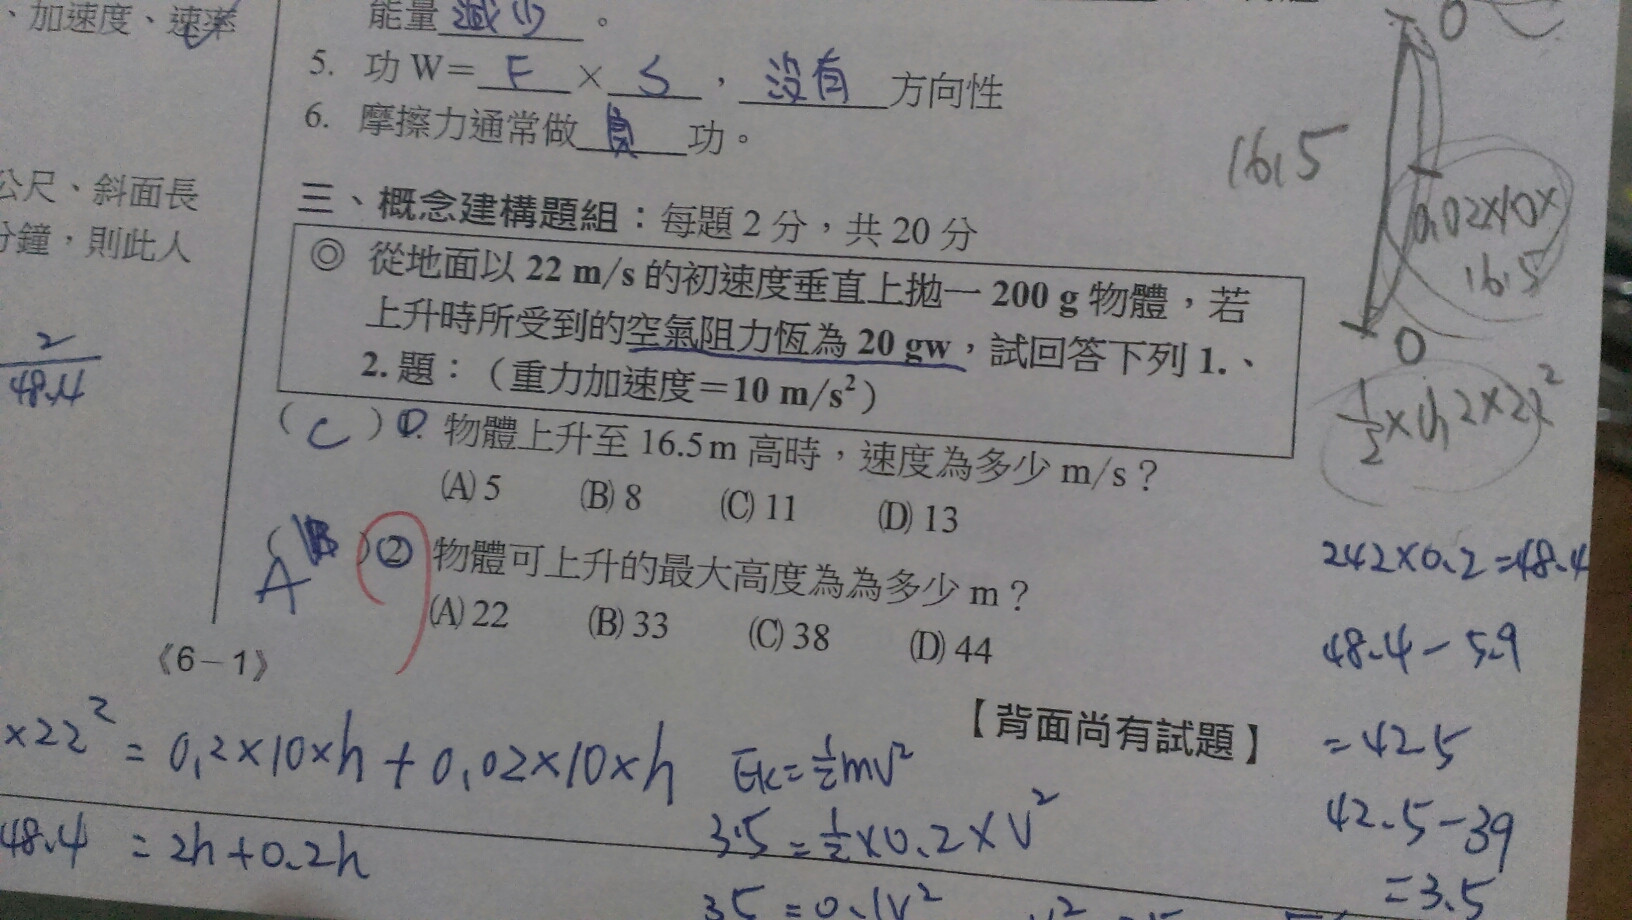 、加速度、速率
能量減少。
5. 功 W= F × S ，沒有方向性
6. 摩擦力通常做負功。
公尺、斜面長
分鐘，則此人
2
48.4
三、概念建構題組：每題 2 分，共 20 分
◎ 從地面以 22 m/s 的初速度垂直上拋一 200 g 物體，若
上升時所受到的空氣阻力恆為 20 gw，試回答下列 1.、
2. 題：（重力加速度＝10 m/s²）
( C ) 1. 物體上升至 16.5 m 高時，速度為多少 m/s？
(A) 5 (B) 8 (C) 11 (D) 13
( B ) 2 物體可上升的最大高度為為多少 m？
A
(A) 22 (B) 33 (C) 38 (D) 44
《6－1》
【背面尚有試題】
×22² = 0.2×10×h + 0.02×10×h
48.4 = 2h+0.2h
Ek=½mv²
3.5 = ½×0.2×V²
35 = 0.1V²
0
16.5
0.02×10×
16.5
0
½×0.2×22²
242×0.2=48.4
48.4-5.9
=42.5
42.5-39
=3.5